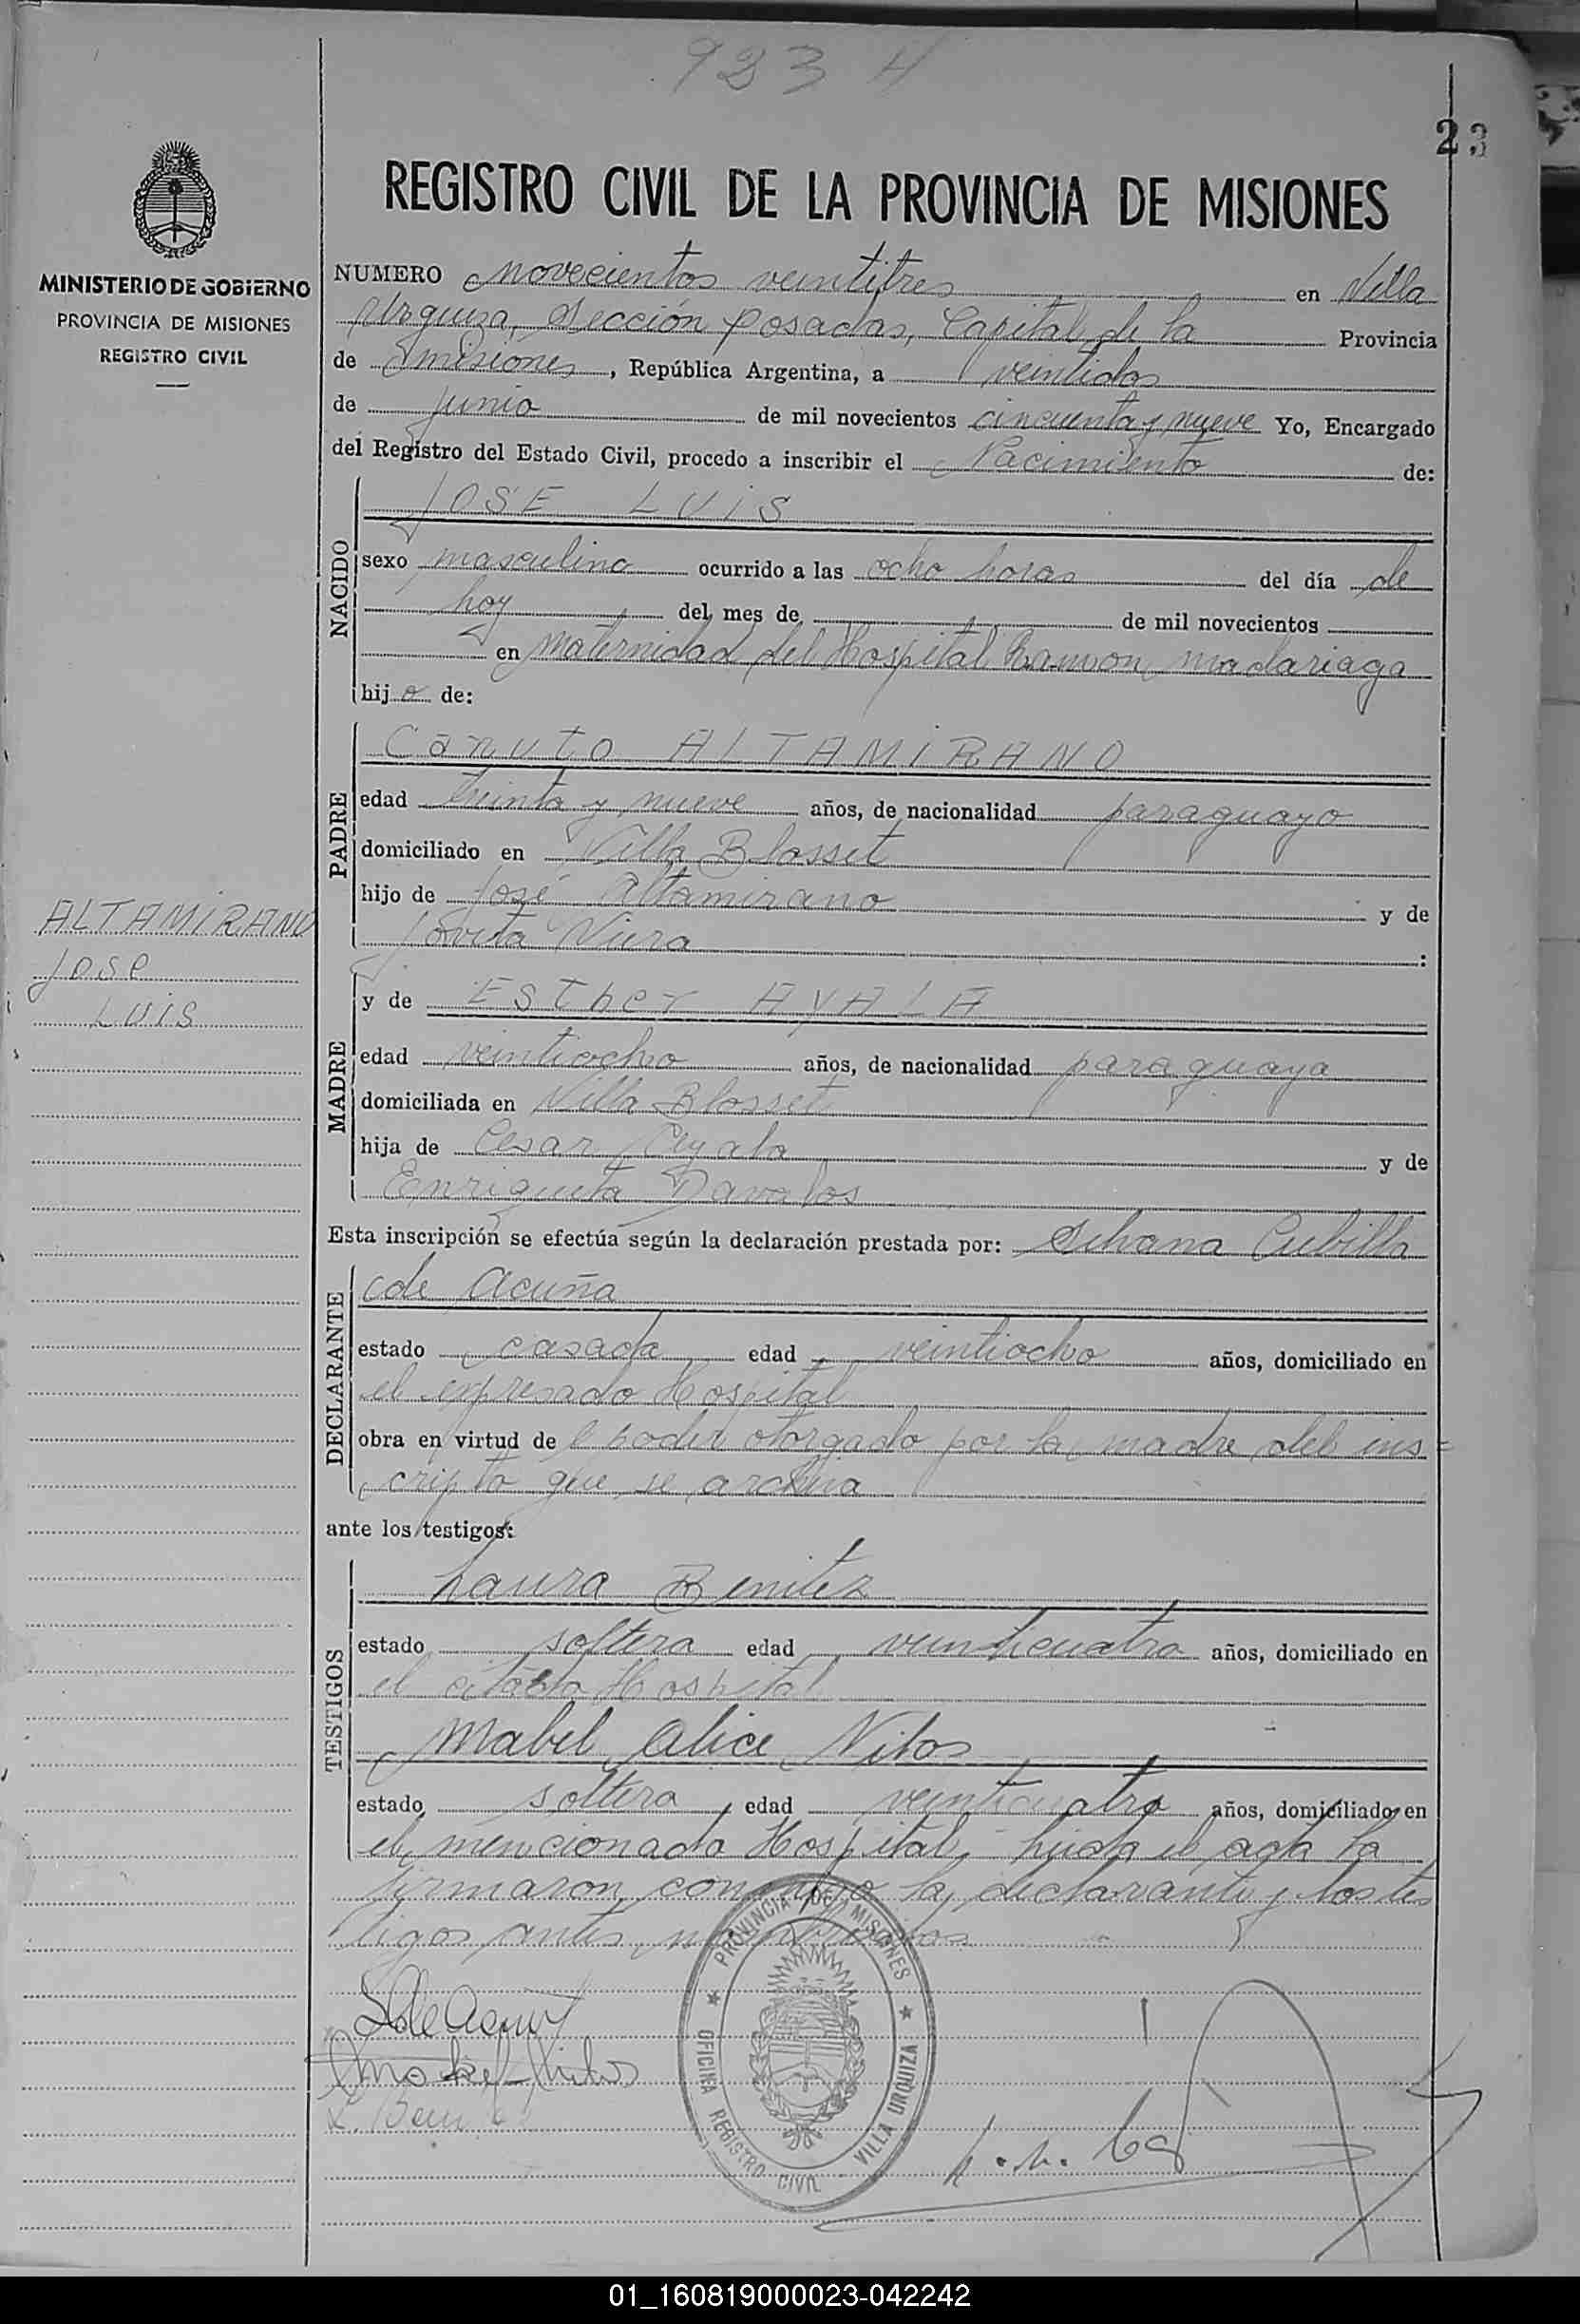 923 H
23
MINISTERIO DE GOBIERNO
PROVINCIA DE MISIONES
REGISTRO CIVIL
REGISTRO CIVIL DE LA PROVINCIA DE MISIONES
NUMERO novecientos veintitres en Villa
Urquiza, Sección Posadas, Capital de la Provincia
de Misiones, República Argentina, a veintidos
de junio de mil novecientos cincuenta y nueve Yo, Encargado
del Registro del Estado Civil, procedo a inscribir el Nacimiento de:
NACIDO
JOSE LUIS
sexo masculino ocurrido a las ocho horas del día de
hoy del mes de de mil novecientos
en Maternidad del Hospital Ramon Madariaga
hijo de:
PADRE
Canuto ALTAMIRANO
edad treinta y nueve años, de nacionalidad paraguayo
domiciliado en Villa Blosset
hijo de José Altamirano y de
Jovita Viera :
ALTAMIRANO
Jose
LUIS
MADRE
y de Esther AYALA
edad veintiocho años, de nacionalidad paraguaya
domiciliada en Villa Blosset
hija de Cesar Ayala y de
Enriqueta Davalos
Esta inscripción se efectúa según la declaración prestada por: Silvana Cubilla
DECLARANTE
de Acuña
estado casada edad veintiocho años, domiciliado en
el expresado Hospital
obra en virtud del poder otorgado por la madre del ins=
cripto que se archiva
ante los testigos:
TESTIGOS
Laura Benitez
estado soltera edad veinticuatro años, domiciliado en
el citado Hospital
Mabel Alice Nilos
estado soltera, edad veinticuatro años, domiciliado en
el mencionado Hospital, leida el acta la
firmaron conmigo la declarante y los tes
tigos antes nombrados
S de Acuña
Mabel Nilos
L. Benitez
PROVINCIA DE MISIONES
OFICINA REGISTRO CIVIL VILLA URQUIZA
01_160819000023-042242